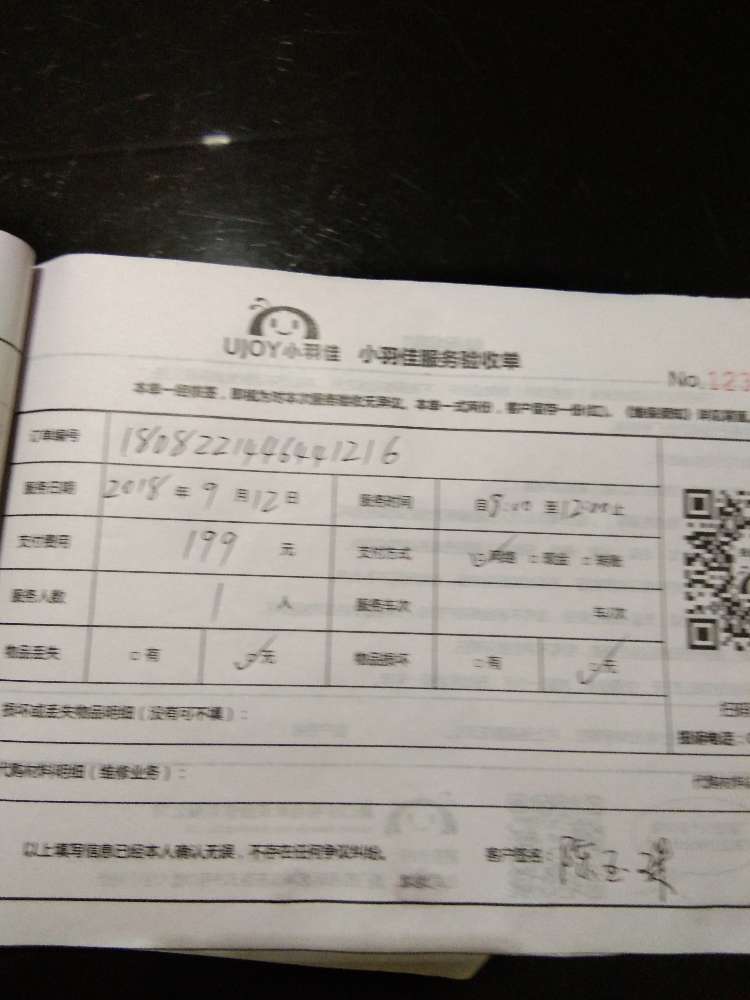 UJOY小羽佳 小羽佳服务验收单
No.123
本单一经核签，即视为对本次服务验收无异议。本单一式两份，客户留存一份(红)。
订单编号 180822144644 1216
服务日期 2018年9月12日 服务时间 自8:00至12:00止
支付费用 199元 支付方式 网络 现金 转账
服务人数 1人 服务车次 车/次
物品丢失 有 无 物品损坏 有 无
损坏或丢失物品明细（没有可不填）：
代购材料明细（维修业务）： 代购材料
以上填写信息已经本人确认无误，不存在任何争议纠纷。 客户签名：陈玉